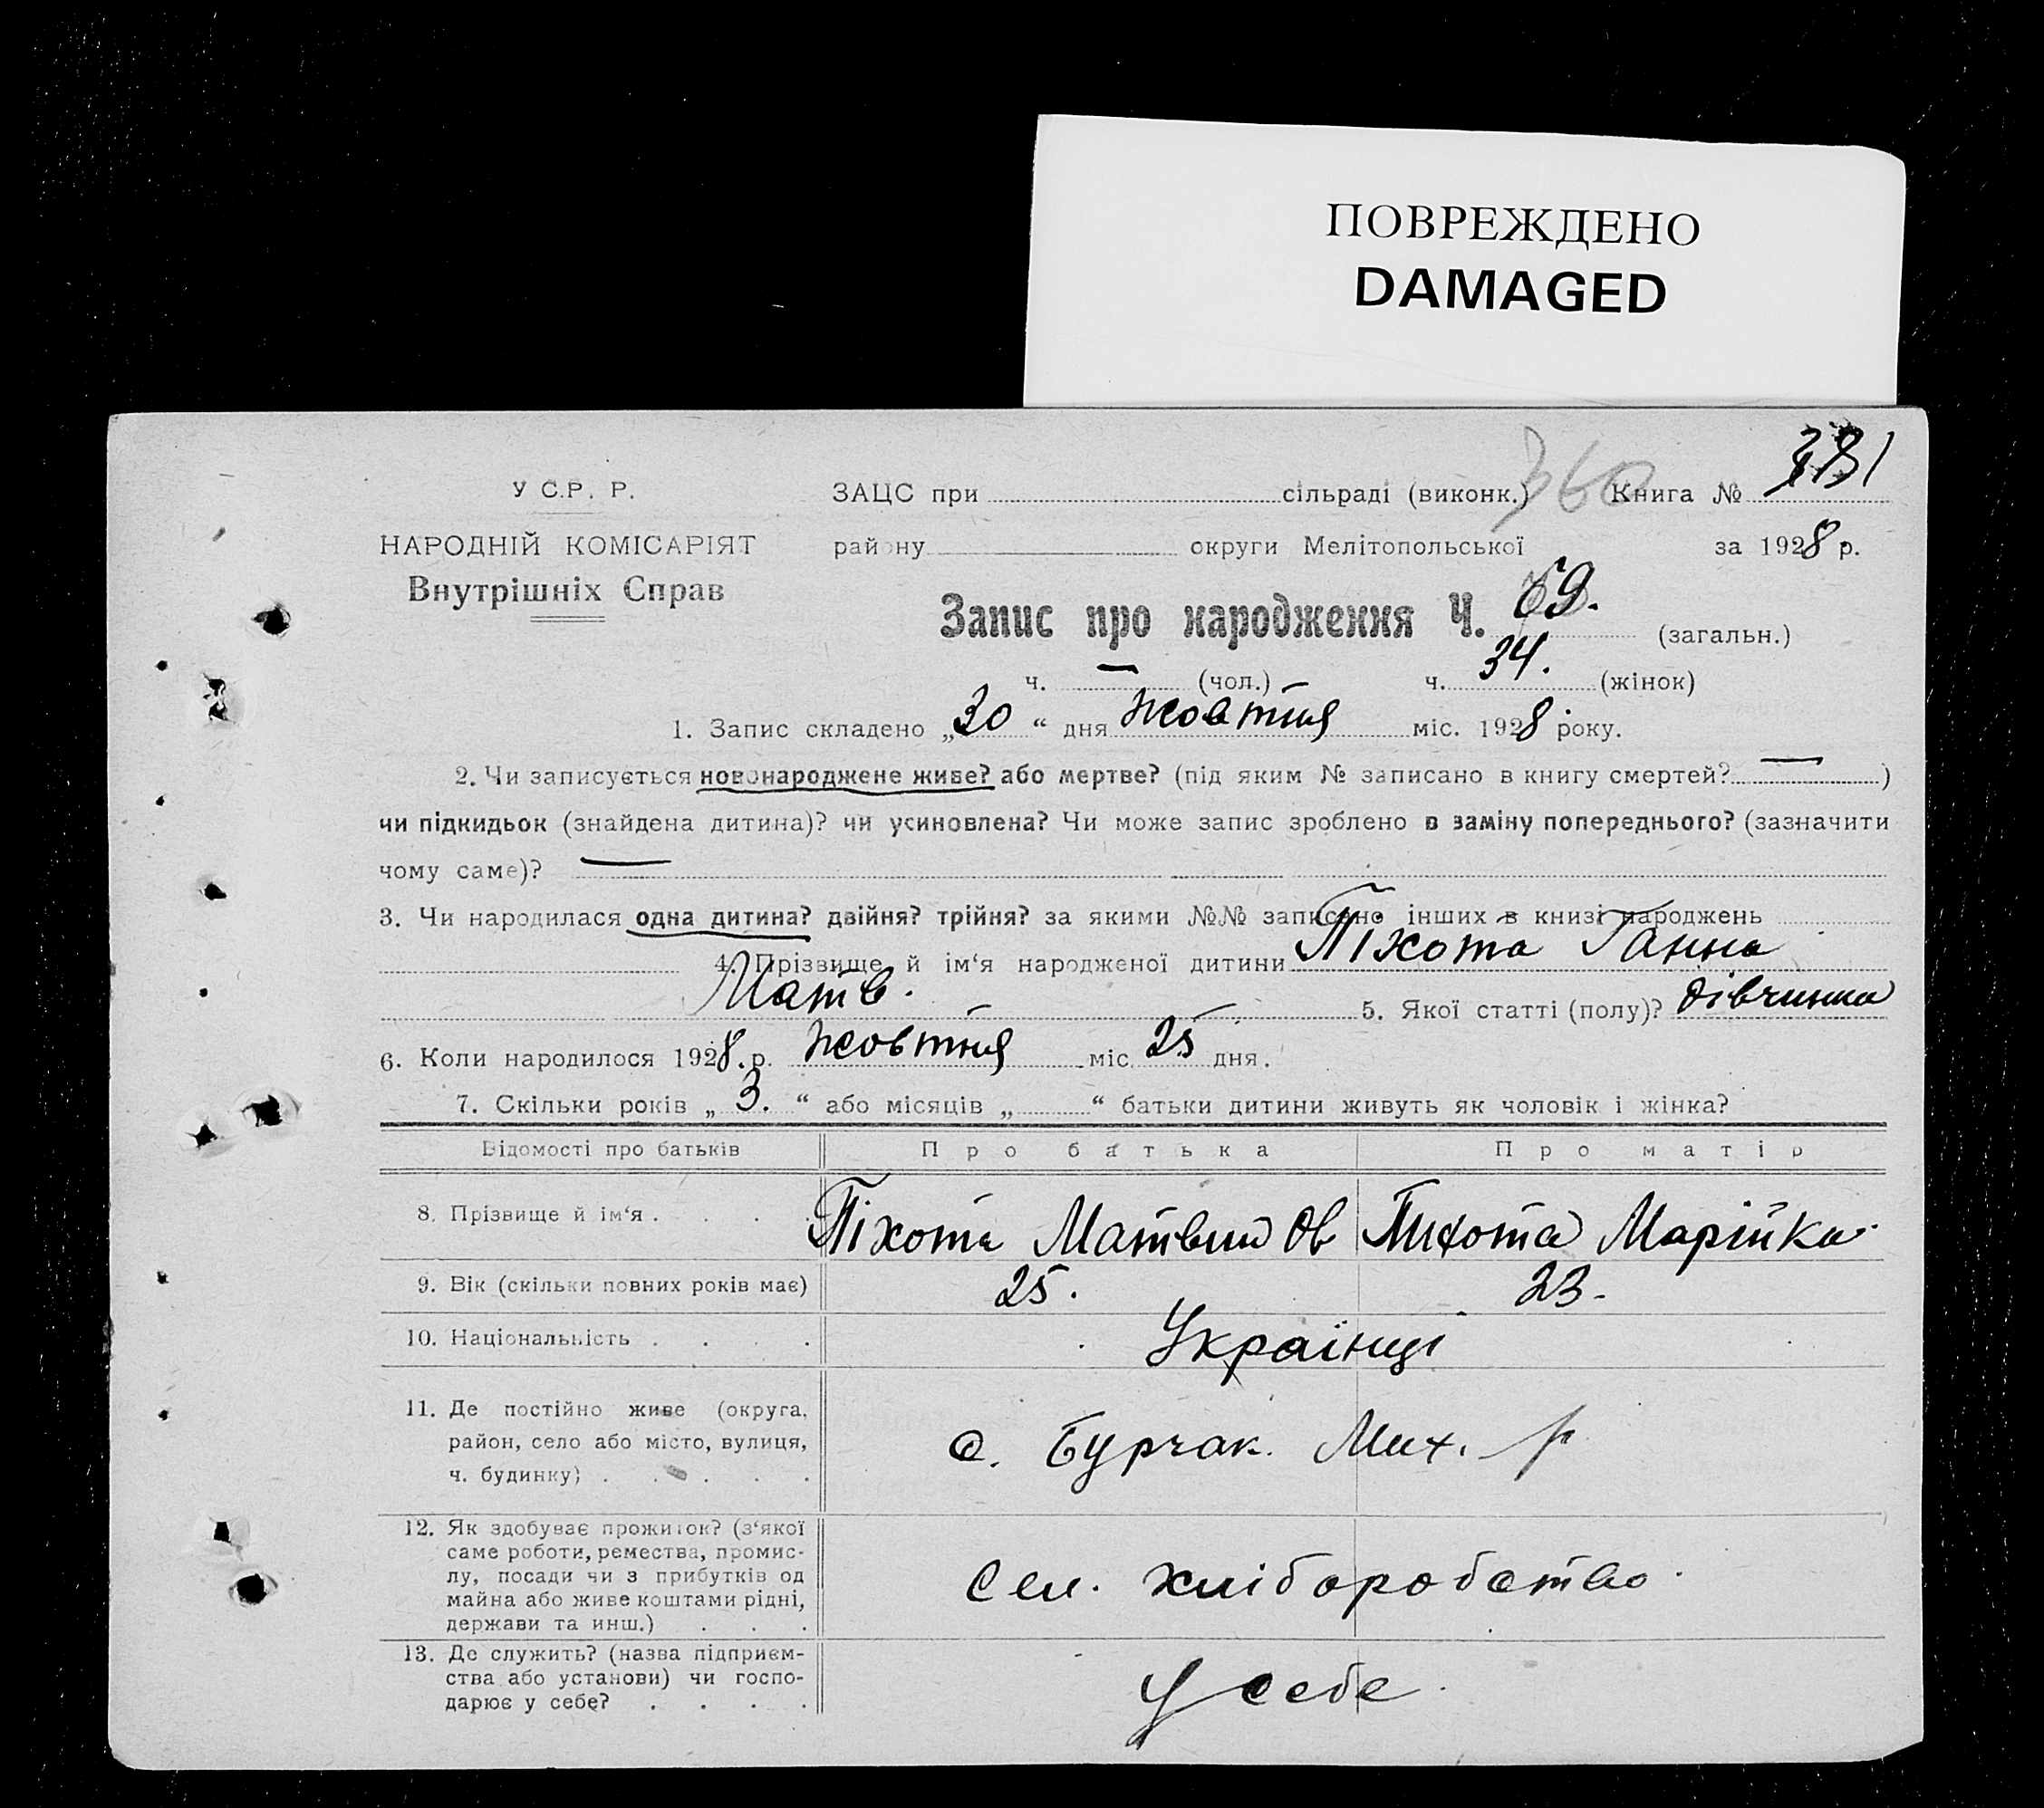 ПОВРЕЖДЕНО
DAMAGED
У С.Р. Р.
НАРОДНІЙ КОМІСАРІЯТ
Внутрішніх Справ
ЗАЦС при сільраді (виконк.) 360 Книга №
району округи Мелітопольської за 1928 р.
Запис про народження Ч. 69. (загальн.)
ч. — (чол.) ч. 34. (жінок)
1. Запис складено „30“ дня жовтня міс. 1928 року.
2. Чи записується новонароджене живе? або мертве? (під яким № записано в книгу смертей? — )
чи підкидьок (знайдена дитина)? чи усиновлена? Чи може запис зроблено в заміну попереднього? (зазначити
чому саме)? —
3. Чи народилася одна дитина? двійня? трійня? за якими №№ записано інших в книзі народжень
4. Прізвище й ім‘я народженої дитини Піхота Ганна
Матв. 5. Якої статті (полу)? дівчинка
6. Коли народилося 1928. р. жовтня міс 25 дня.
7. Скільки років „3.“ або місяців „ “ батьки дитини живуть як чоловік і жінка?
Відомості про батьків Про батька Про матір
8. Прізвище й ім‘я . . . . Піхота Матвий Ов Пихота Марійка
9. Вік (скільки повних років має) 25. 23.
10. Національність . . . . Українці
11. Де постійно живе (округа,
район, село або місто, вулиця,
ч. будинку) . . . . . с. Бурчак. Мих. р
12. Як здобуває прожиток? (з‘якої
саме роботи, ремества, промис-
лу, посади чи з прибутків од
майна або живе коштами рідні,
держави та инш.) . . . Сел. хліборобство.
13. Де служить? (назва підприєм-
ства або установи) чи госпо-
дарює у себе? . . . . У себе.